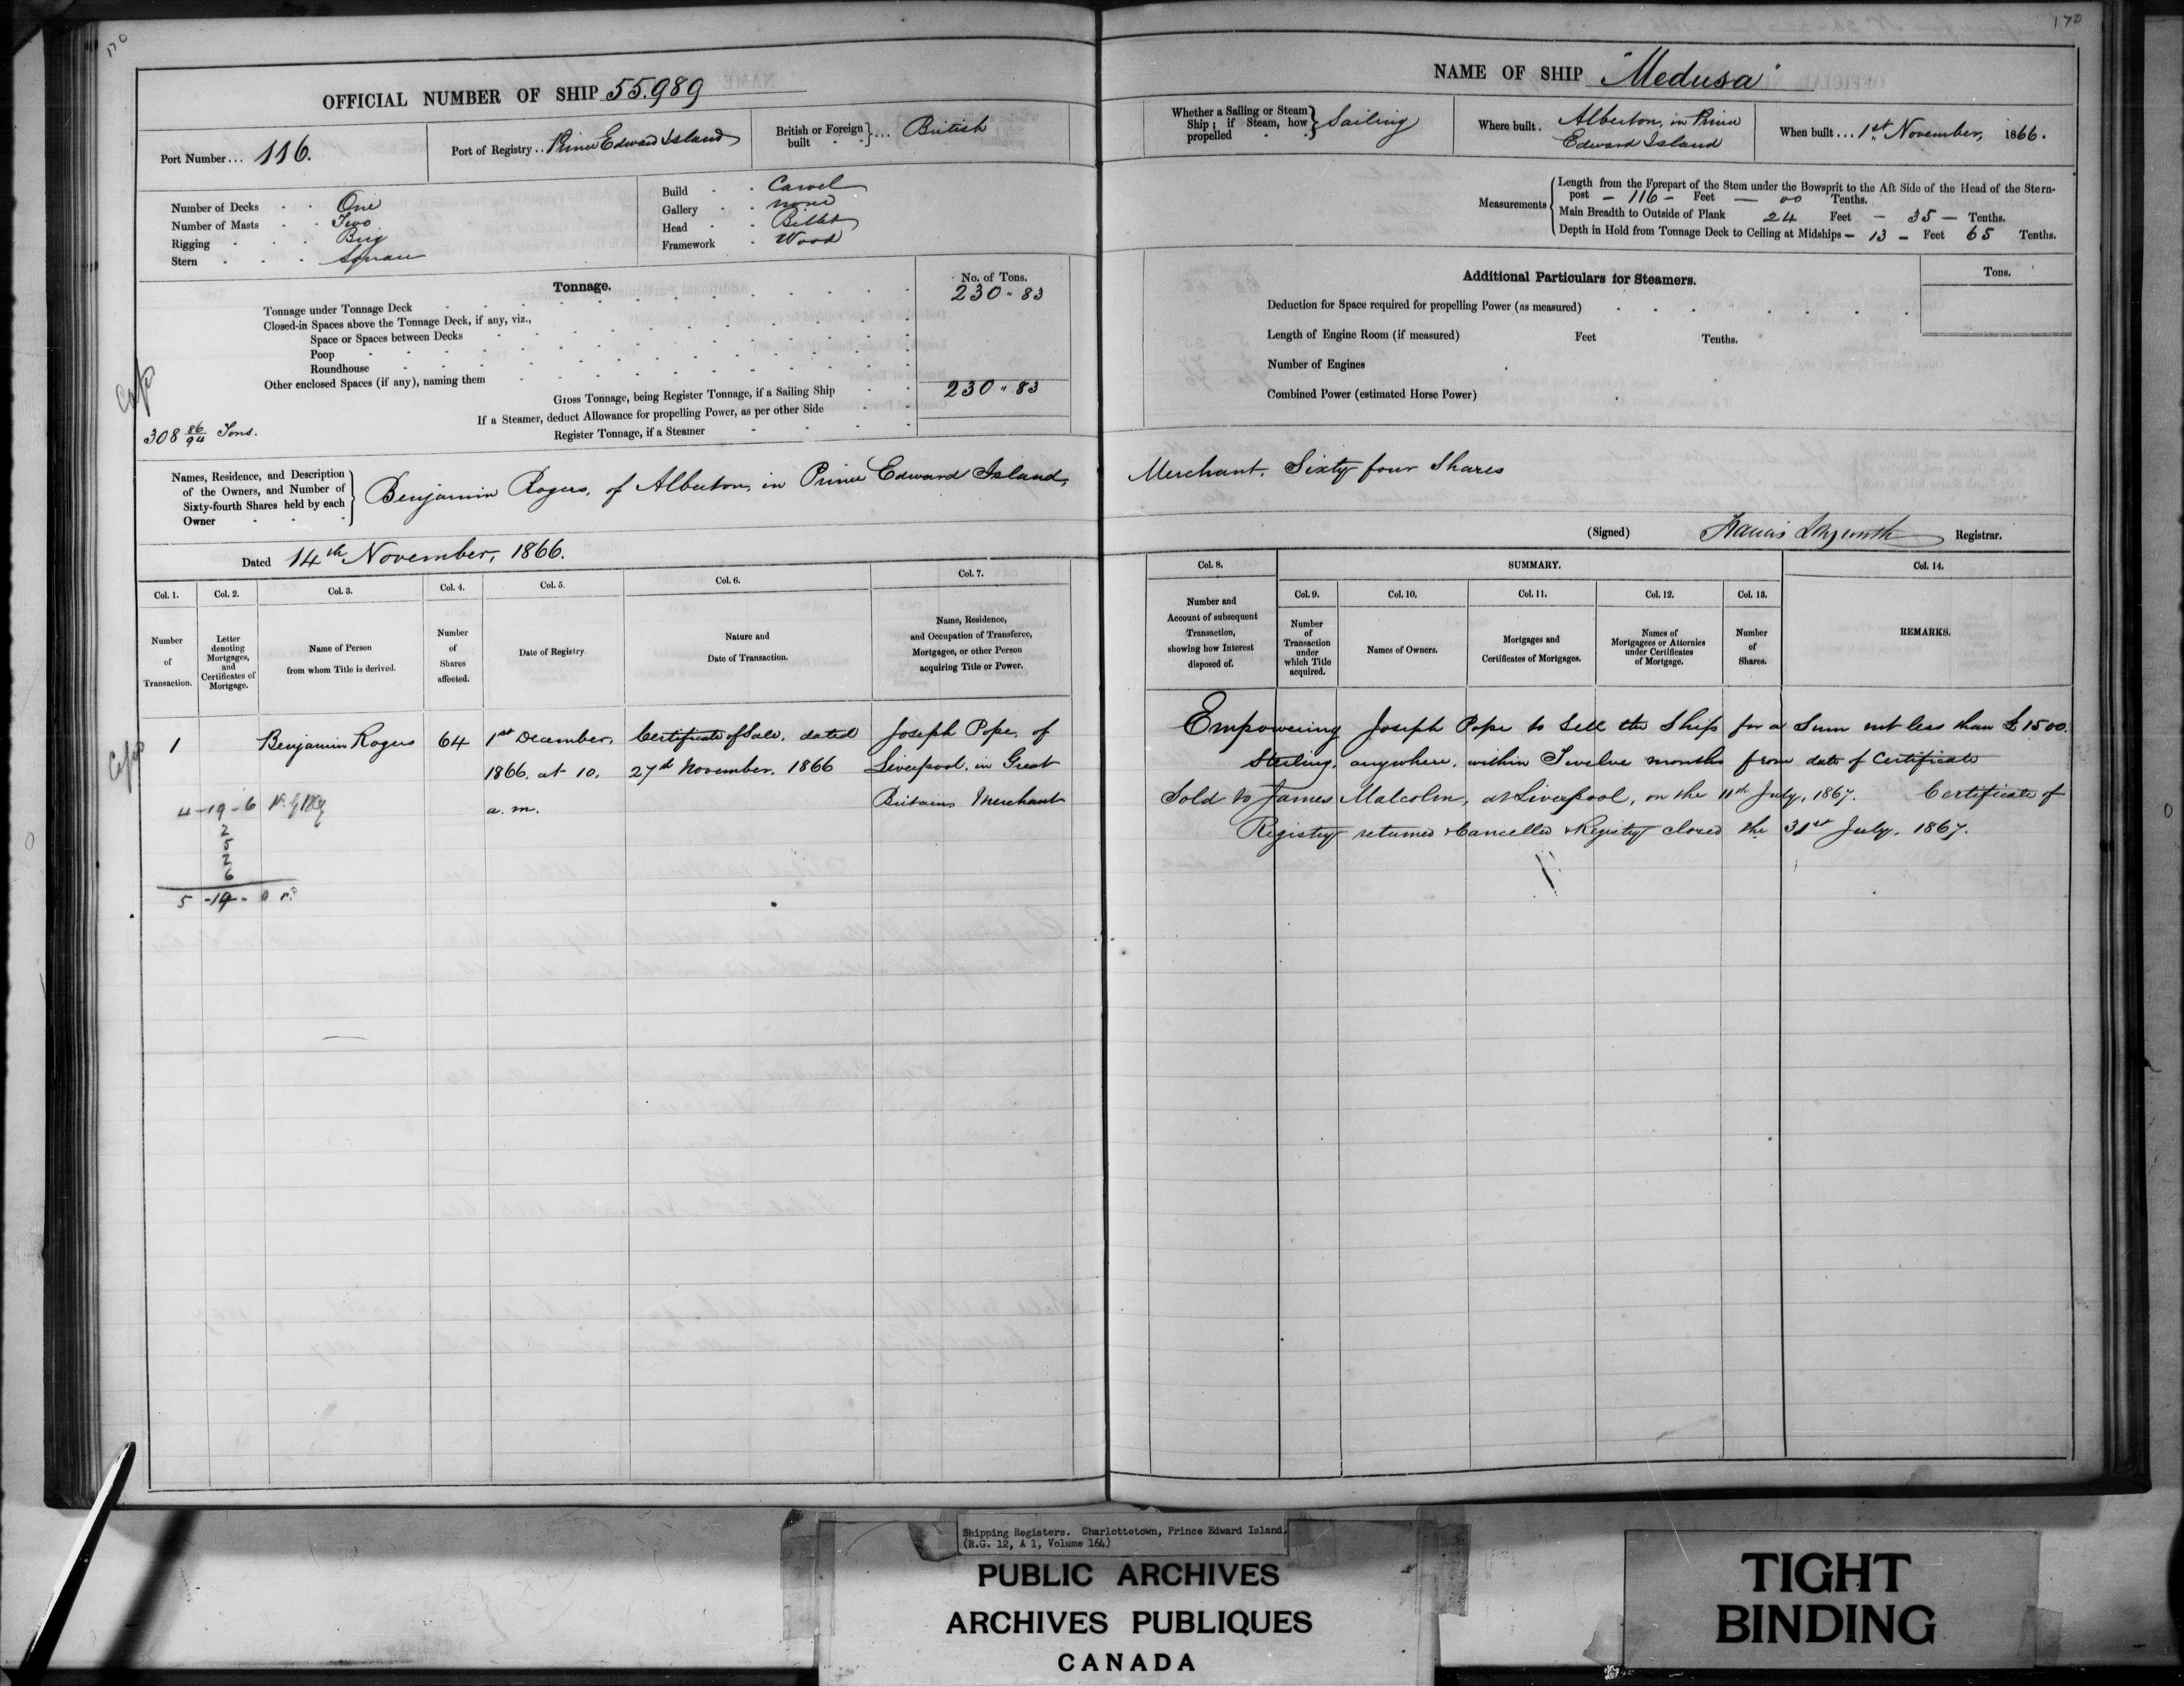 170
OFFICIAL NUMBER OF SHIP 55.989
Port Number... 116.
Port of Registry.. Prince Edward Island
British or Foreign built } ... British
Number of Decks One
Number of Masts Two
Rigging Brig
Stern Square
Build Carvel
Gallery none
Head Billet
Framework Wood
Tonnage.
No. of Tons.
Tonnage under Tonnage Deck 230 " 83
Closed-in Spaces above the Tonnage Deck, if any, viz.,
Space or Spaces between Decks
Poop
Roundhouse
Other enclosed Spaces (if any), naming them
Gross Tonnage, being Register Tonnage, if a Sailing Ship 230 " 83
If a Steamer, deduct Allowance for propelling Power, as per other Side
Register Tonnage, if a Steamer
308 86/94 Tons.
Names, Residence, and Description
of the Owners, and Number of
Sixty-fourth Shares held by each
Owner
Benjamin Rogers, of Alberton, in Prince Edward Island,
Dated 14th November, 1866.
Col. 1. Col. 2. Col. 3. Col. 4. Col. 5. Col. 6. Col. 7.
Number of Transaction.
Letter denoting Mortgages, and Certificates of Mortgage.
Name of Person from whom Title is derived.
Number of Shares affected.
Date of Registry.
Nature and Date of Transaction.
Name, Residence, and Occupation of Transferee, Mortgagee, or other Person acquiring Title or Power.
1 Benjamin Rogers 64 1st December, Certificate of Sale, dated Joseph Pope, of
1866. at 10. 27th November, 1866 Liverpool, in Great
a. m. Britain Merchant
4-19-6
2
5
2
6
5-19-0
170
NAME OF SHIP "Medusa"
Whether a Sailing or Steam Ship; if Steam, how propelled } Sailing
Where built. Alberton, in Prince
Edward Island
When built... 1st November, 1866.
Measurements
Length from the Forepart of the Stem under the Bowsprit to the Aft Side of the Head of the Stern-
post – 116 – Feet – 00 Tenths.
Main Breadth to Outside of Plank 24 Feet – 35 – Tenths.
Depth in Hold from Tonnage Deck to Ceiling at Midships – 13 – Feet 65 Tenths.
Additional Particulars for Steamers.
Tons.
Deduction for Space required for propelling Power (as measured)
Length of Engine Room (if measured) Feet Tenths.
Number of Engines
Combined Power (estimated Horse Power)
Merchant. Sixty four Shares
(Signed) Francis Longworth Registrar.
Col. 8. SUMMARY. Col. 14.
Col. 9. Col. 10. Col. 11. Col. 12. Col. 13.
Number and Account of subsequent Transaction, showing how Interest disposed of.
Number of Transaction under which Title acquired.
Names of Owners.
Mortgages and Certificates of Mortgages.
Names of Mortgagees or Attornies under Certificates of Mortgage.
Number of Shares.
REMARKS.
Empowering Joseph Pope to Sell the Ship for a Sum not less than £1500.
Sterling, anywhere, within Twelve months from date of Certificate
Sold to James Malcolm, at Liverpool, on the 11th July, 1867. Certificate of
Registry returned & Cancelled & Registry closed the 31st July, 1867.
Shipping Registers. Charlottetown, Prince Edward Island.
(R.G. 12, A 1, Volume 164)
PUBLIC ARCHIVES
ARCHIVES PUBLIQUES
CANADA
TIGHT
BINDING